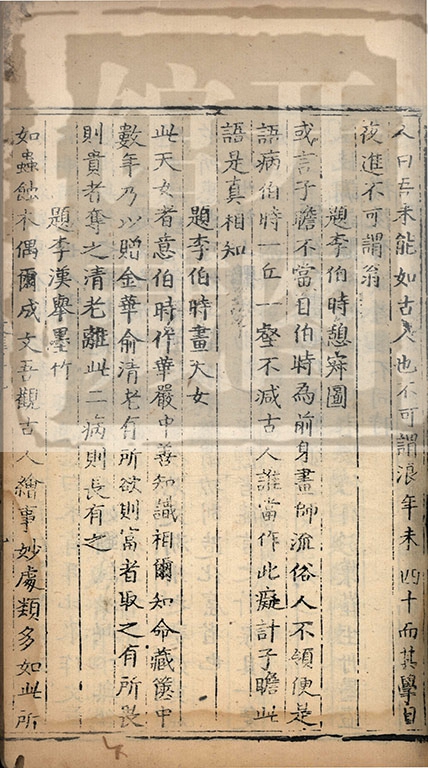 人曰吾未能如古人也不可謂浪年未四十而其學日
夜進不可謂翁
題李伯時憩寂圖
或言子瞻不當目伯時為前身畫師流俗人不領便是
語病伯時一丘一壑不減古人誰當作此癡計子瞻此
語是真相知
題李伯時畫天女
此天女者意伯時作華嚴中善知識相爾知命藏篋中
數年乃以贈金華俞清老有所欲則富者取之有所畏
則貴者奪之清老離此二病則長有之
題李漢舉墨竹
如蟲蝕木偶爾成文吾觀古人繪事妙處類多如此所